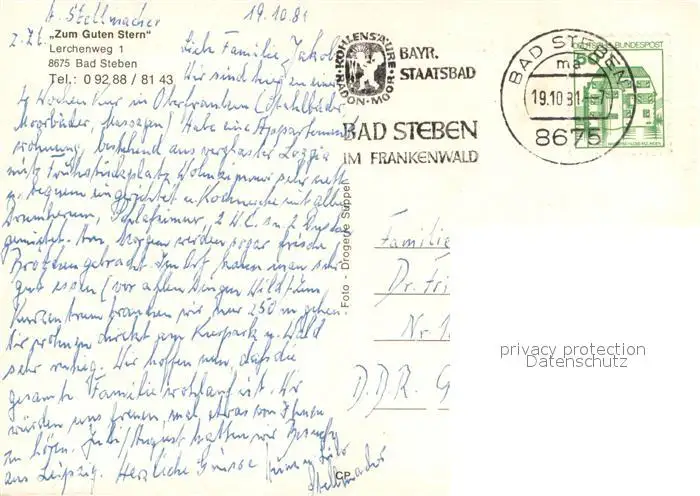 A. Stellmacher 19.10.81
z.Zt. "Zum Guten Stern"
Lerchenweg 1
8675 Bad Steben
Tel.: 0 92 88 / 81 43
Liebe Familie Jakob
Wir sind hier zu einer
Wochen Kur in Oberfranken (Stahlbäder
Moorbäder, Massagen) Habe eine Appartement
wohnung, bestehend aus verglaster Loggia
mit Frühstücksplatz, Wohnzimmer sehr nett
u. bequem eingerichtet u. Kochnische mit allem
Drumherum, Schlafzimmer, 2 W.C. u. 2 Duschen
gemietet. Am Morgen werden sogar frische
Brötchen gebracht. Im Ort kann man sehr
gut essen (vor allen Dingen Wild) zum
Kurzentrum brauchen wir nur 250 m gehen.
Wir wohnen direkt am Kurpark u. Wald
sehr ruhig. Wir hoffen nun, daß die
gesamte Familie wohlauf ist. Wir
würden uns freuen, mal etwas von Ihnen
zu hören. Juli/August hatten wir Besuch
aus Leipzig. Herzliche Grüsse
Stellmacher
KOHLENSÄURE
RADON-MOOR
BAYR.
STAATSBAD
BAD STEBEN
IM FRANKENWALD
BAD STEBEN
ma
19.10.81
8675
DEUTSCHE BUNDESPOST
50
Foto - Drogerie Suppen
CP
Familie
Dr.
Nr. 1
D.D.R. G
privacy protection
Datenschutz